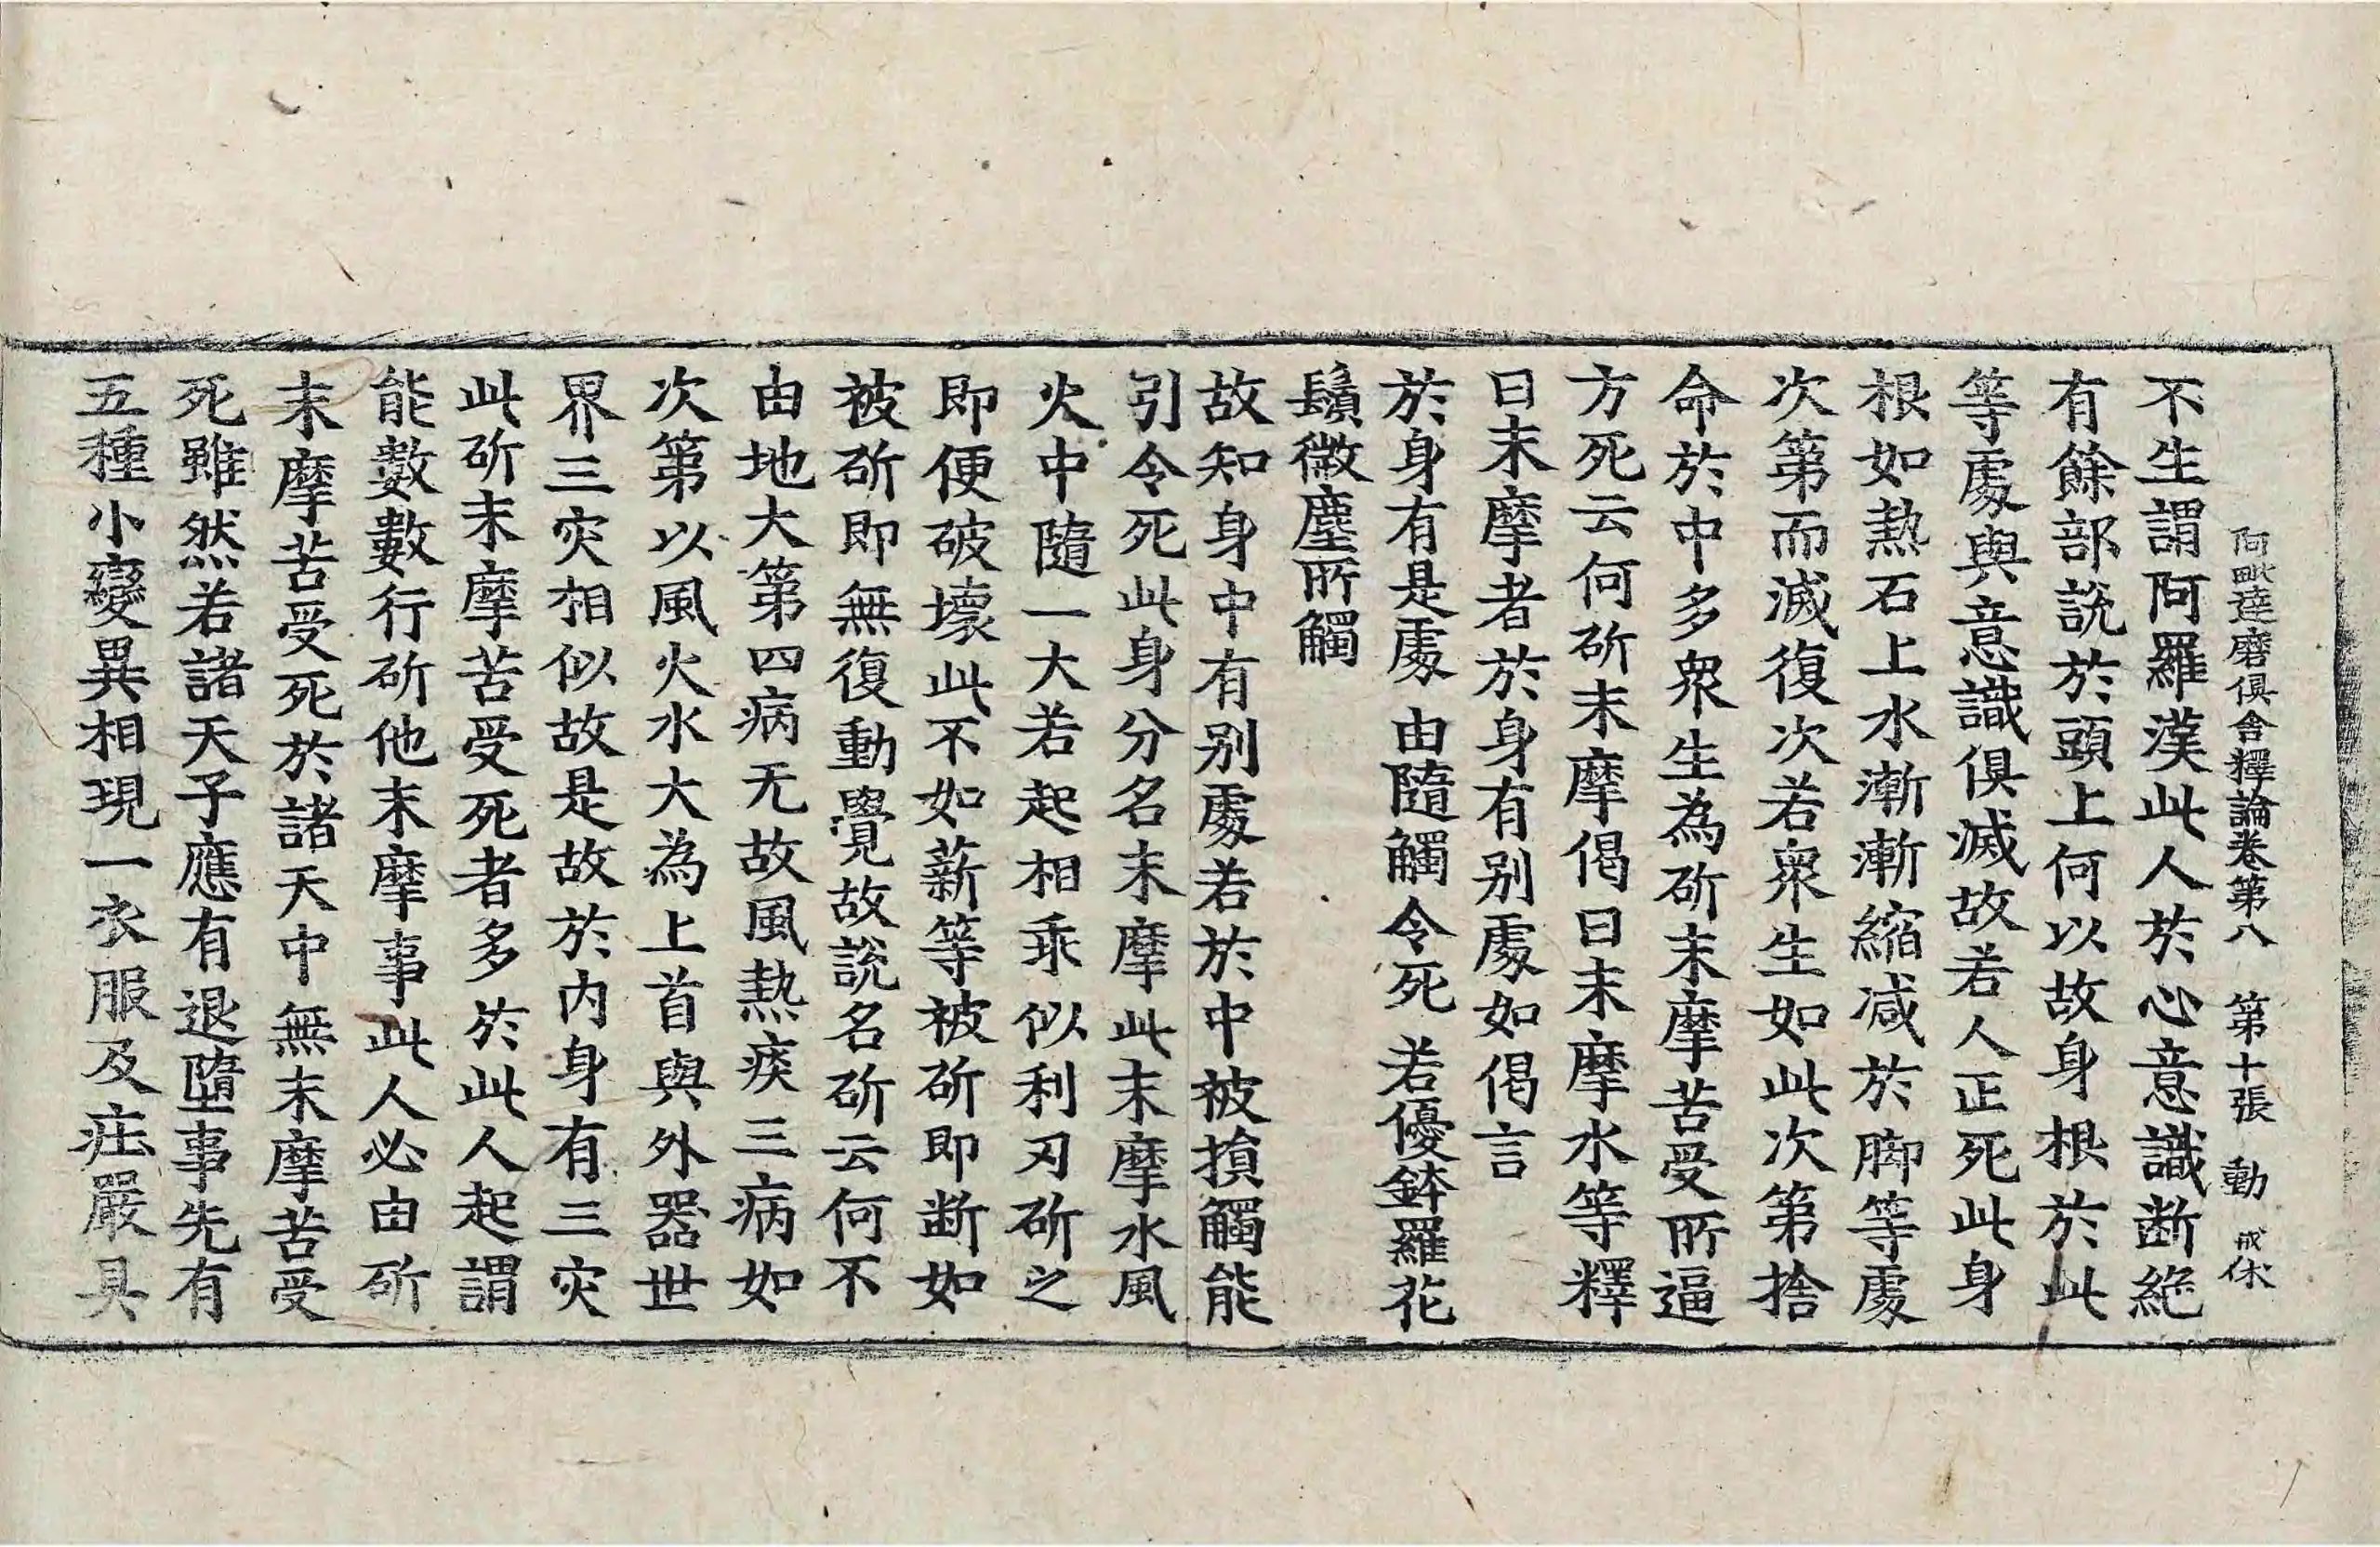 阿毗達磨俱舍釋論卷第八 第十張 動 戒休
不生謂阿羅漢此人於心意識断絶
有餘部說於頭上何以故身根於此
等處與意識俱滅故若人正死此身
根如熱石上水漸漸縮减於脚等處
次第而滅復次若衆生如此次第捨
命於中多衆生為斫末摩苦受所逼
方死云何斫末摩偈曰末摩水等釋
曰末摩者於身有别處如偈言
於身有是處 由隨觸令死 若優鉢羅花
鬚微塵所觸
故知身中有别處若於中被損觸能
引令死此身分名末摩此末摩水風
火中隨一大若起相乖似利刃斫之
即便破壞此不如薪等被斫即断如
被斫即無復動覺故說名斫云何不
由地大第四病无故風熱痰三病如
次第以風火水大為上首與外器世
界三灾相似故是故於内身有三灾
此斫末摩苦受死者多於此人起謂
能數數行斫他末摩事此人必由斫
末摩苦受死於諸天中無末摩苦受
死雖然若諸天子應有退墮事先有
五種小變異相現一衣服及莊嚴具